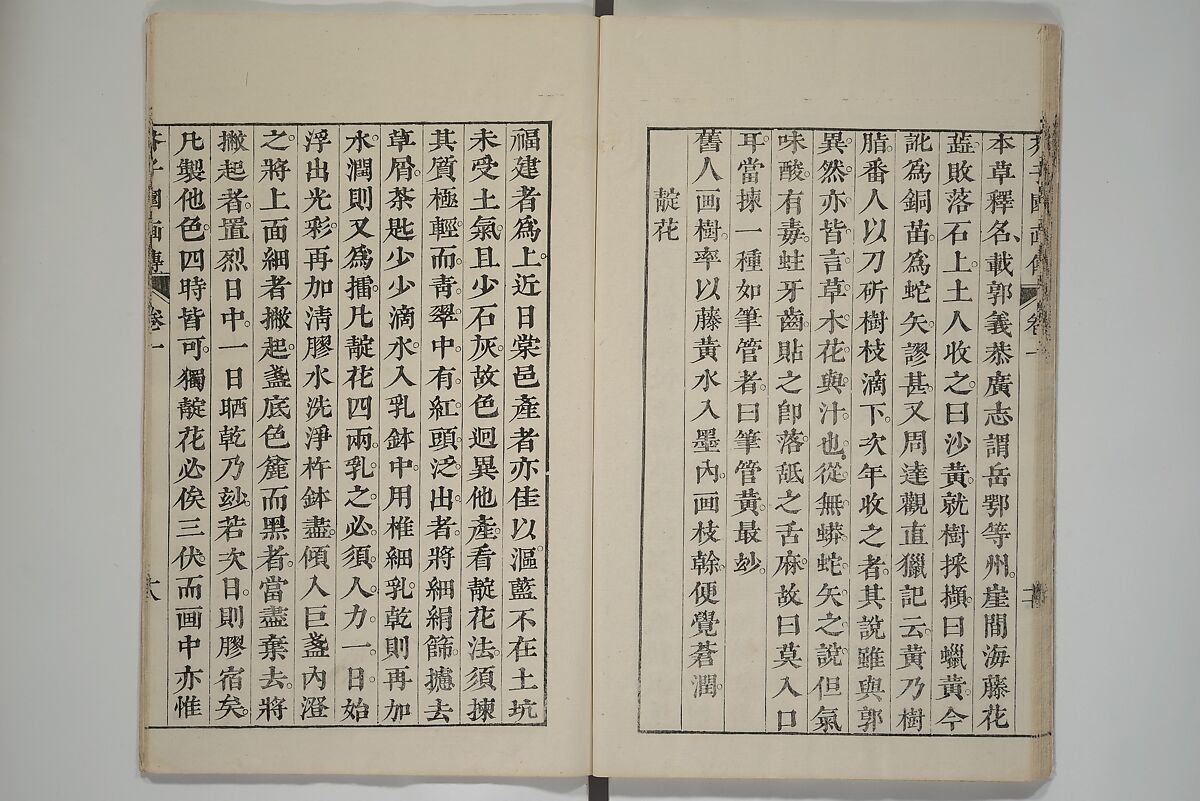 本草釋名載郭義恭廣志謂岳鄂等州崖間海藤花
蕋敗落石上土人收之曰沙黄就樹採擷曰蠟黄今
訛爲銅苗爲蛇矢謬甚又周達觀直獵記云黄乃樹
脂番人以刀斫樹枝滴下次年收之者其說雖與郭
異然亦皆言草木花與汁也從無蟒蛇矢之說但氣
味酸有毒蛀牙齒貼之卽落舐之舌麻故曰莫入口
耳當揀一種如筆管者曰筆管黄最玅
舊人画樹率以藤黄水入墨內画枝榦便覺蒼潤
靛花
福建者爲上近日棠邑產者亦佳以漚藍不在土坑
未受土氣且少石灰故色迥異他產看靛花法須揀
其質極輕而靑翠中有紅頭泛出者將細絹篩攄去
草屑茶匙少少滴水入乳鉢中用椎細乳乾則再加
水潤則又爲擂凢靛花四兩乳之必須人力一日始
浮出光彩再加淸膠水洗淨杵鉢盡傾入巨盞內澄
之將上面細者撇起盞底色麄而黑者當盡棄去將
撇起者置烈日中一日晒乾乃玅若次日則膠宿矣
凢製他色四時皆可獨靛花必俟三伏而画中亦惟
芥子園画傳
卷一